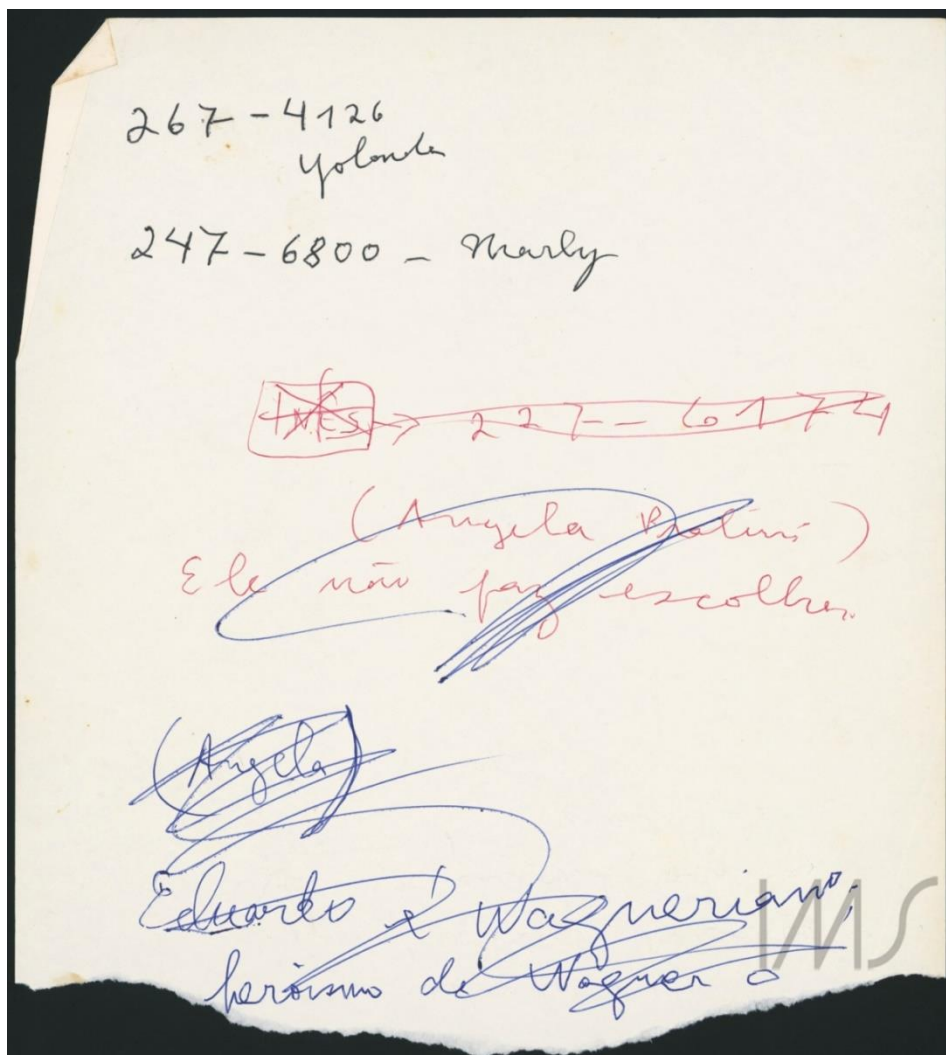 267-4126
Yolanda
247-6800 - Marly
INÊS → 227-6174
(Angela Pralini)
Ele não faz escolhas.
(Angela)
Eduardo é Wagneriano,
heroísmo de Wagner o
IMS